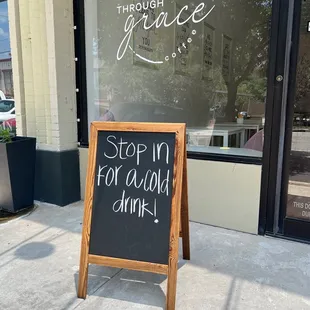 THROUGH
grace
coffee
Stop in
For a cold
drink!
THIS DO